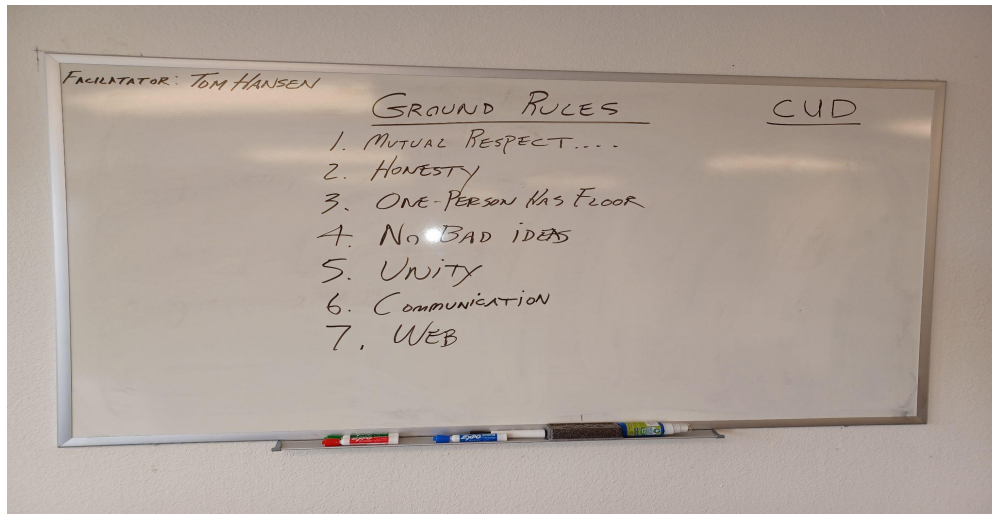 FACILATATOR: TOM HANSEN
GROUND RULES
CUD
1. MUTUAL RESPECT....
2. HONESTY
3. ONE-PERSON HAS FLOOR
4. NO BAD IDEAS
5. UNITY
6. COMMUNICATION
7. WEB
EXPO